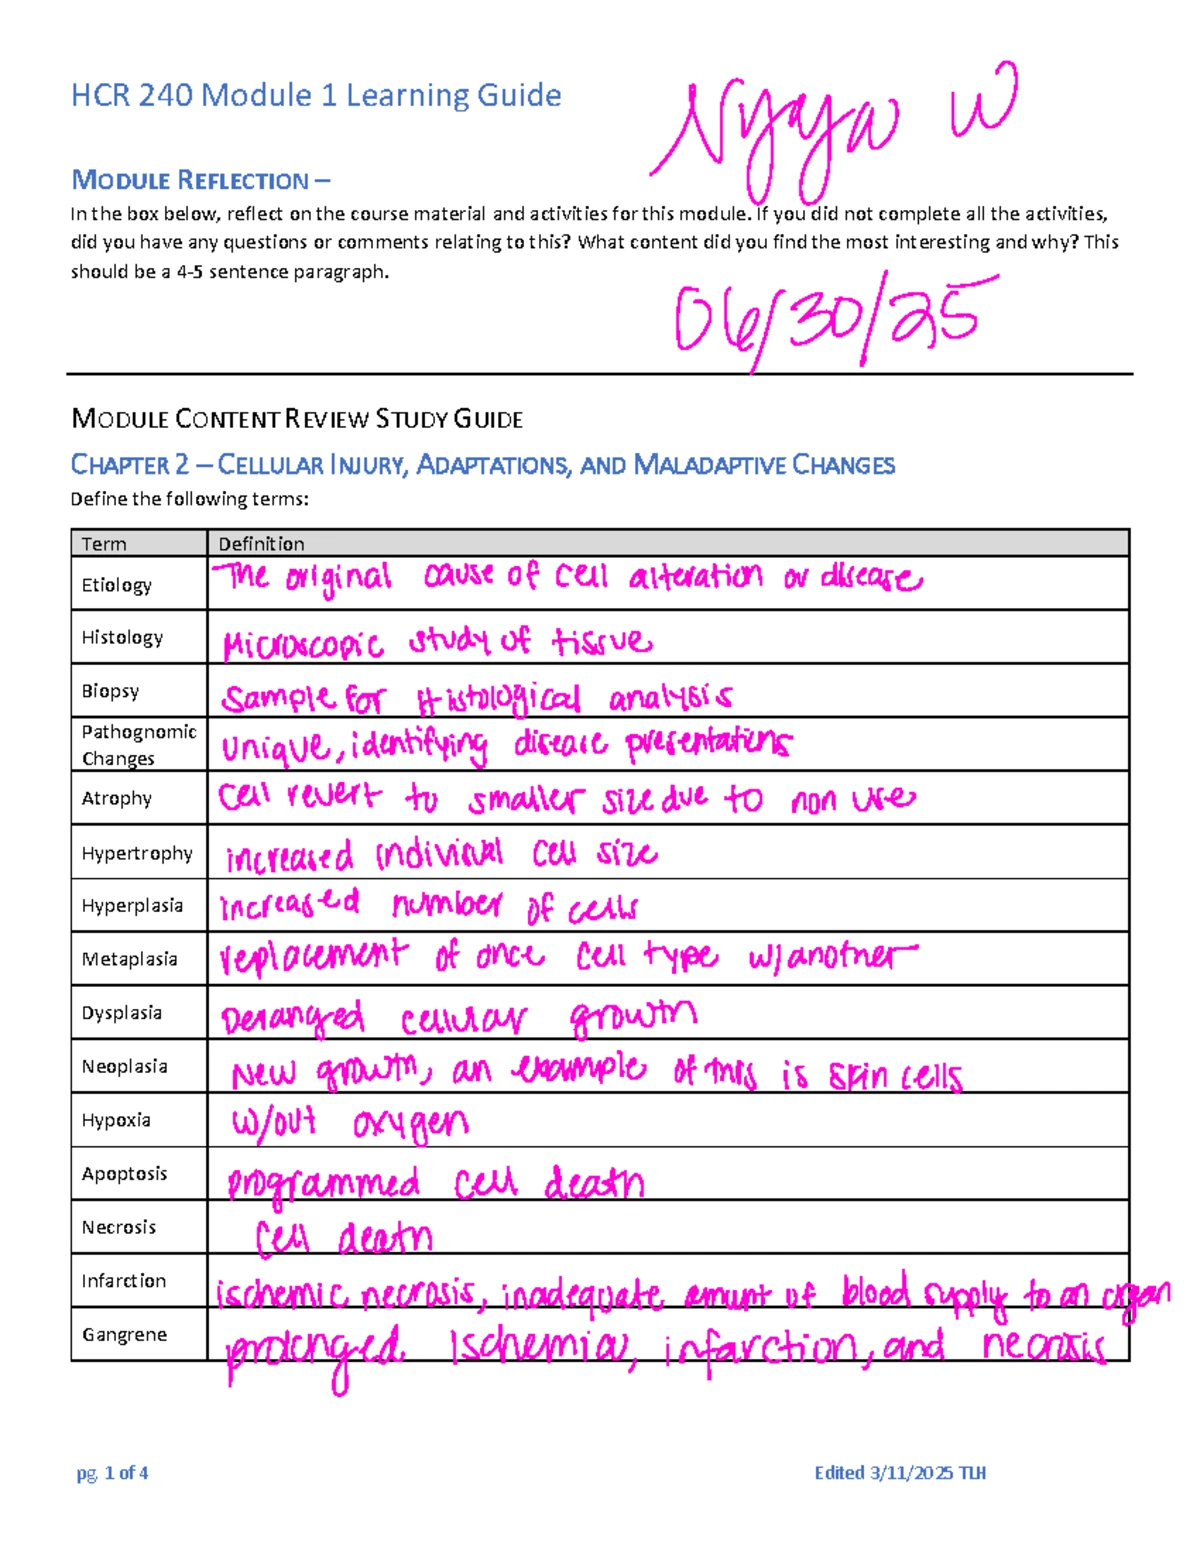 HCR 240 Module 1 Learning Guide
Nyaya W
MODULE REFLECTION –
In the box below, reflect on the course material and activities for this module. If you did not complete all the activities,
did you have any questions or comments relating to this? What content did you find the most interesting and why? This
should be a 4-5 sentence paragraph.
06/30/25
MODULE CONTENT REVIEW STUDY GUIDE
CHAPTER 2 – CELLULAR INJURY, ADAPTATIONS, AND MALADAPTIVE CHANGES
Define the following terms:
Term Definition
Etiology The original cause of cell alteration or disease
Histology Microscopic study of tissue
Biopsy Sample for Histological analysis
Pathognomic
Changes unique, identifying disease presentations
Atrophy Cell revert to smaller size due to non use
Hypertrophy increased individual cell size
Hyperplasia increased number of cells
Metaplasia replacement of once cell type w/another
Dysplasia Deranged cellular growth
Neoplasia New growth, an example of this is skin cells
Hypoxia w/out oxygen
Apoptosis programmed cell death
Necrosis Cell death
Infarction ischemic necrosis, inadequate amunt of blood supply to an organ
Gangrene prolonged Ischemia, infarction, and necrosis
pg. 1 of 4 Edited 3/11/2025 TLH